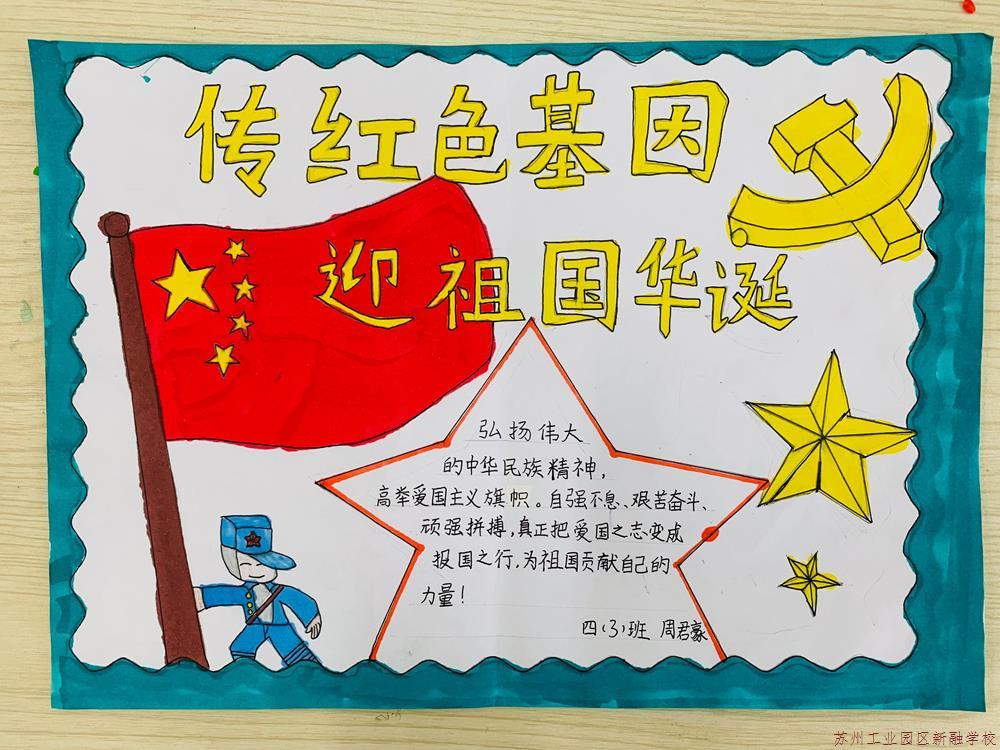 传红色基因
迎祖国华诞
弘扬伟大
的中华民族精神，
高举爱国主义旗帜。自强不息、艰苦奋斗、
顽强拼搏，真正把爱国之志变成
报国之行，为祖国贡献自己的
力量！
四（3）班 周君豪
苏州工业园区新融学校